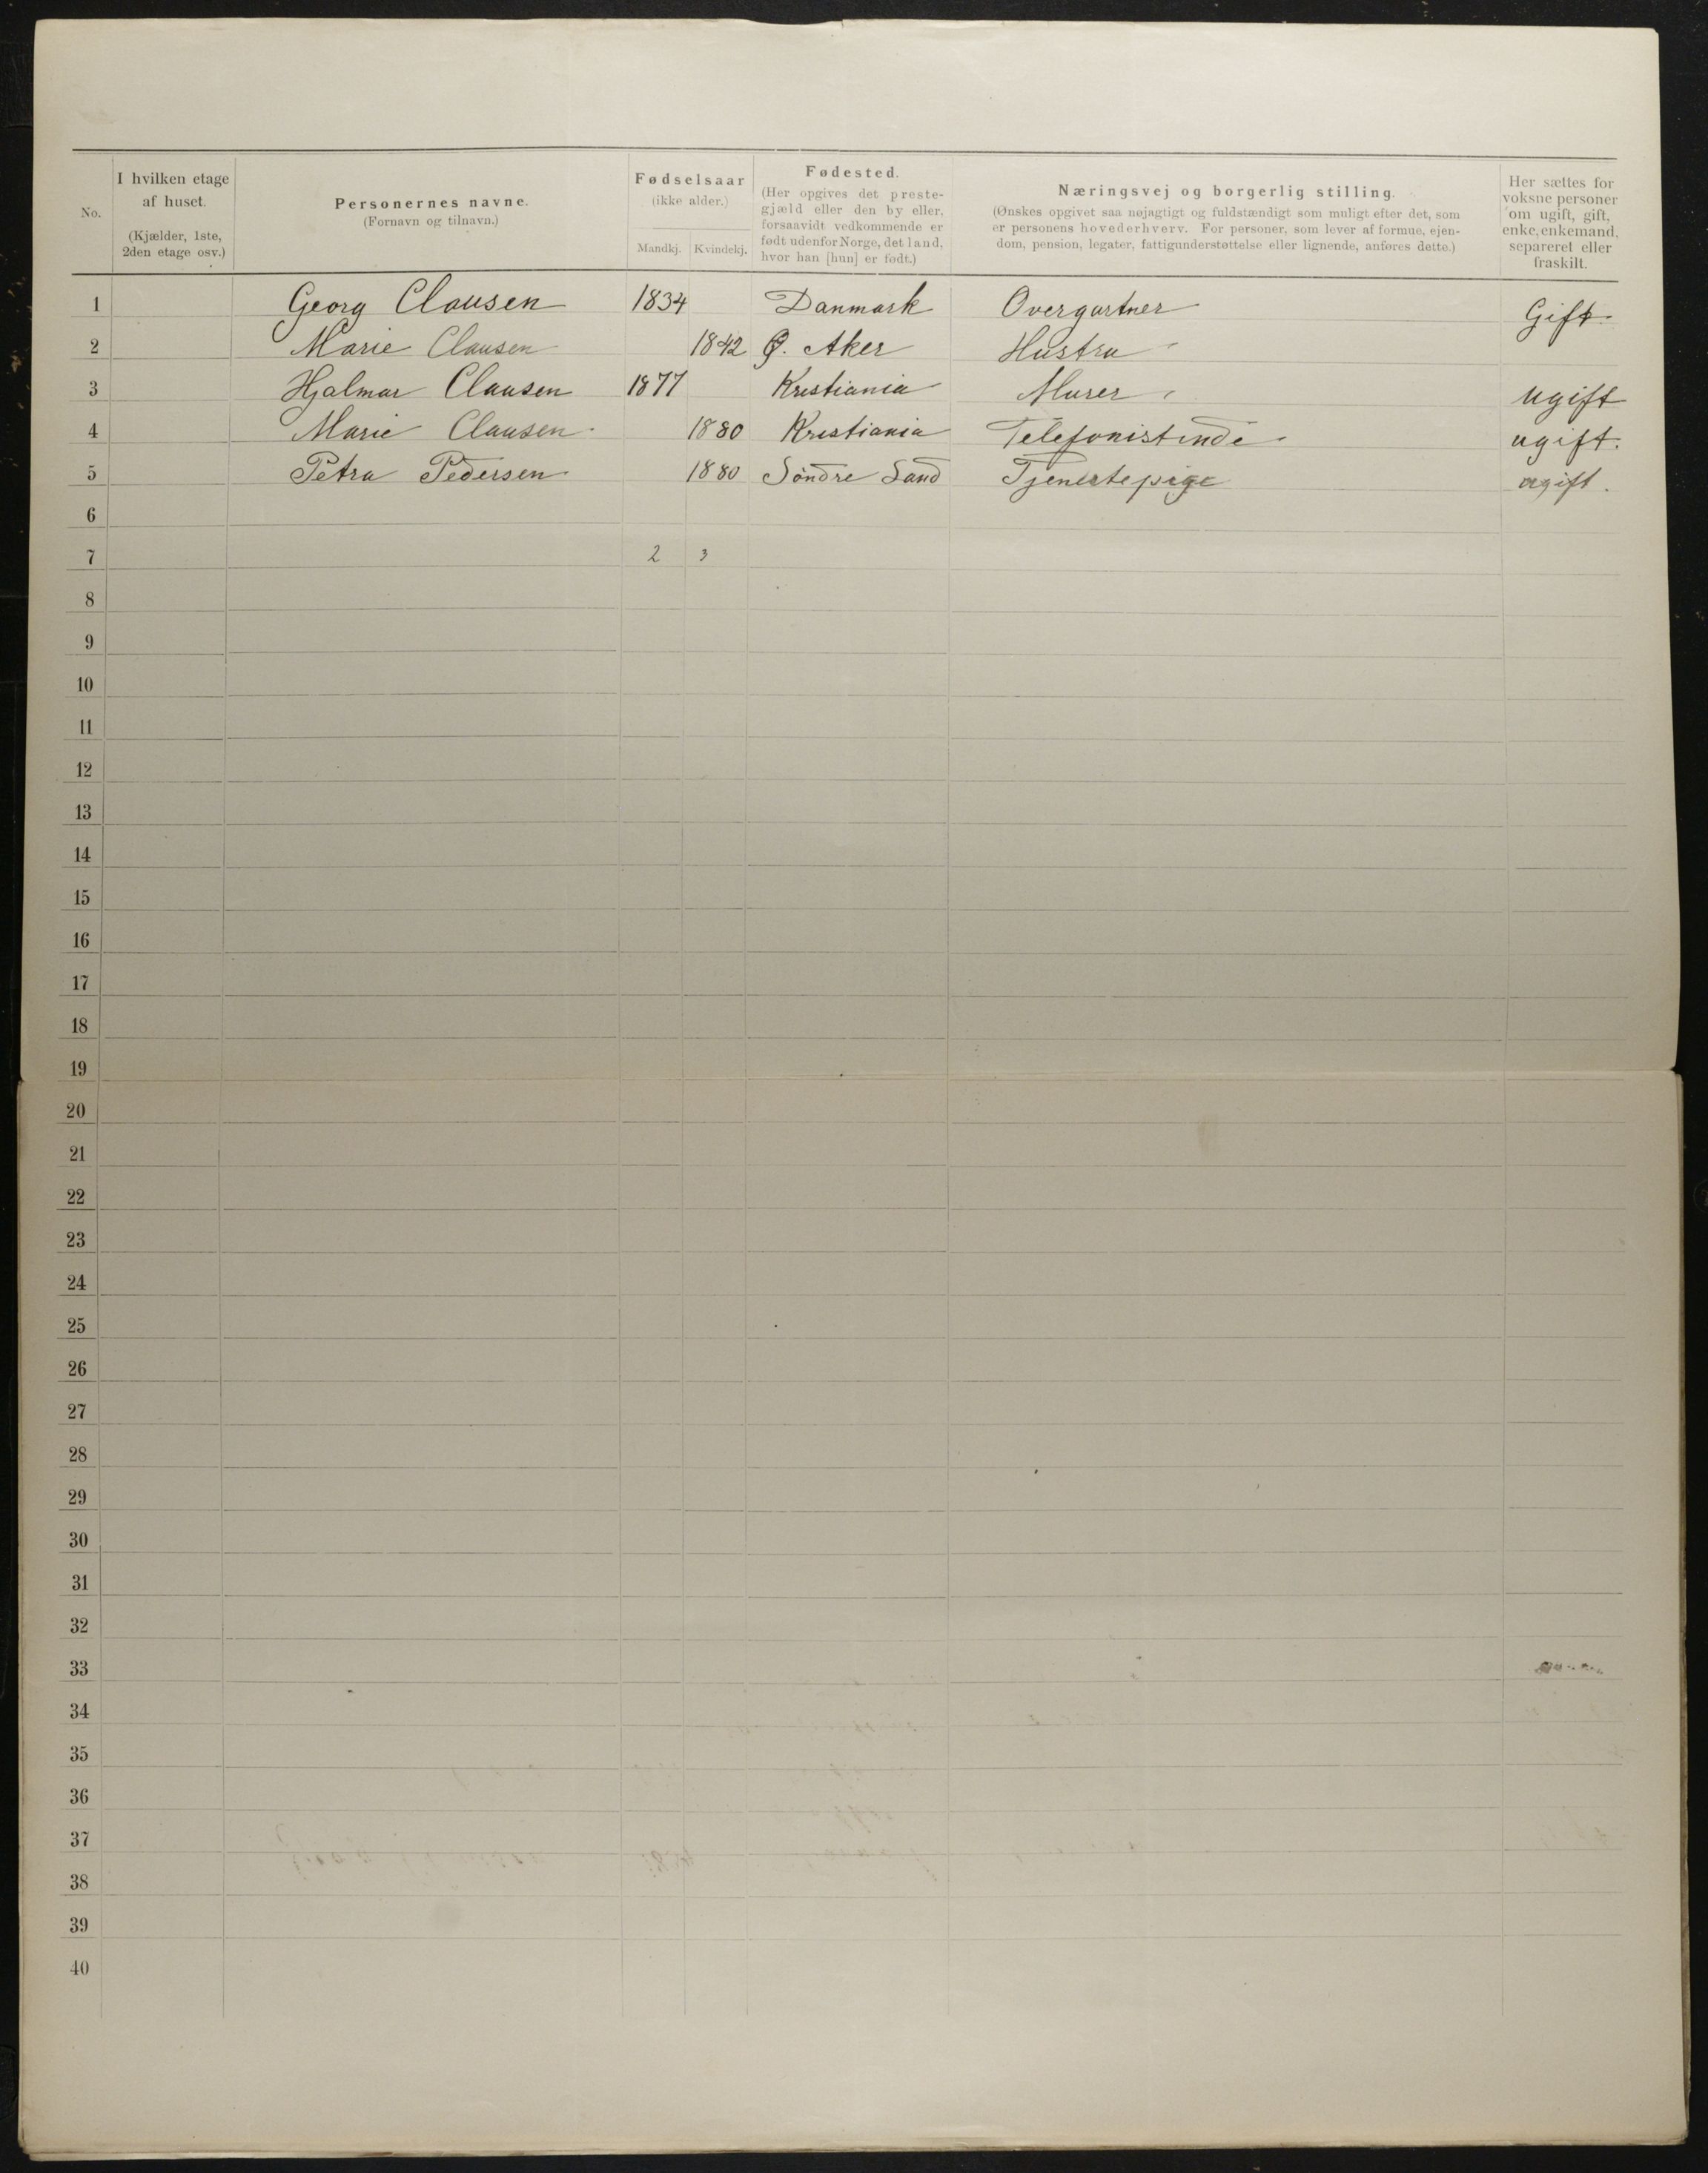 No.
I hvilken etage af huset. (Kjælder, 1ste, 2den etage osv.)
Personernes navne. (Fornavn og tilnavn.)
Fødselsaar (ikke alder.)
Mandkj. Kvindekj.
Fødested. (Her opgives det prestegjæld eller den by eller, forsaavidt vedkommende er født udenfor Norge, det land, hvor han [hun] er født.)
Næringsvej og borgerlig stilling.
(Ønskes opgivet saa nøjagtigt og fuldstændigt som muligt efter det, som er personens hovederhverv. For personer, som lever af formue, ejendom, pension, legater, fattigunderstøttelse eller lignende, anføres dette.)
Her sættes for voksne personer om ugift, gift, enke, enkemand, separeret eller fraskilt.
1 Georg Clausen 1834 Danmark Overgartner Gift.
2 Marie Clausen 1842 Ø. Aker Hustru
3 Hjalmar Clausen 1877 Kristiania Murer ugift
4 Marie Clausen. 1880 Kristiania Telefonistinde. ugift.
5 Petra Pedersen 1880 Söndre Land Tjenestepige ugift.
6
7 2 3
8
9
10
11
12
13
14
15
16
17
18
19
20
21
22
23
24
25
26
27
28
29
30
31
32
33
34
35
36
37
38
39
40